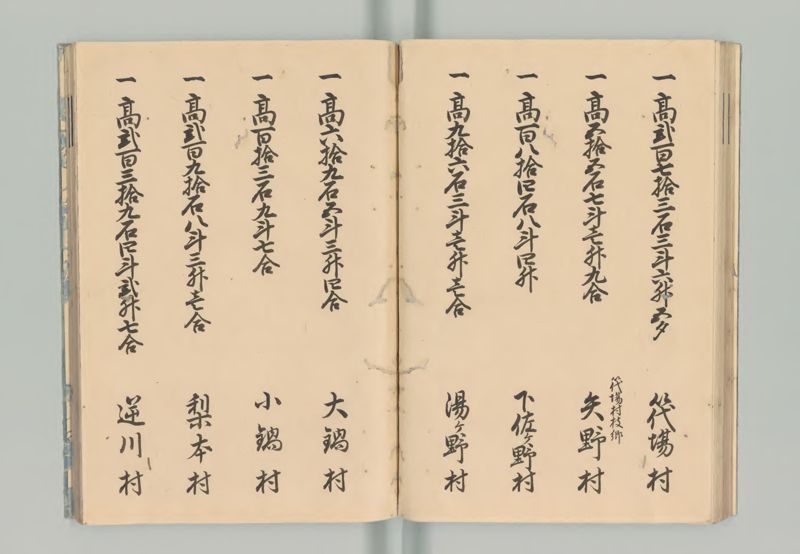 一 高弐百七拾三石三斗六升五夕 筏場村
一 高五拾五石七斗壱升九合 筏場村枝郷 矢野村
一 高百八拾四石八斗四升 下佐ヶ野村
一 高九拾六石三斗壱升壱合 湯ヶ野村
一 高六拾九石五斗三升四合 大鍋村
一 高百拾三石九斗七合 小鍋村
一 高弐百九拾石八斗三升壱合 梨本村
一 高弐百三拾九石四斗弐升七合 逆川村